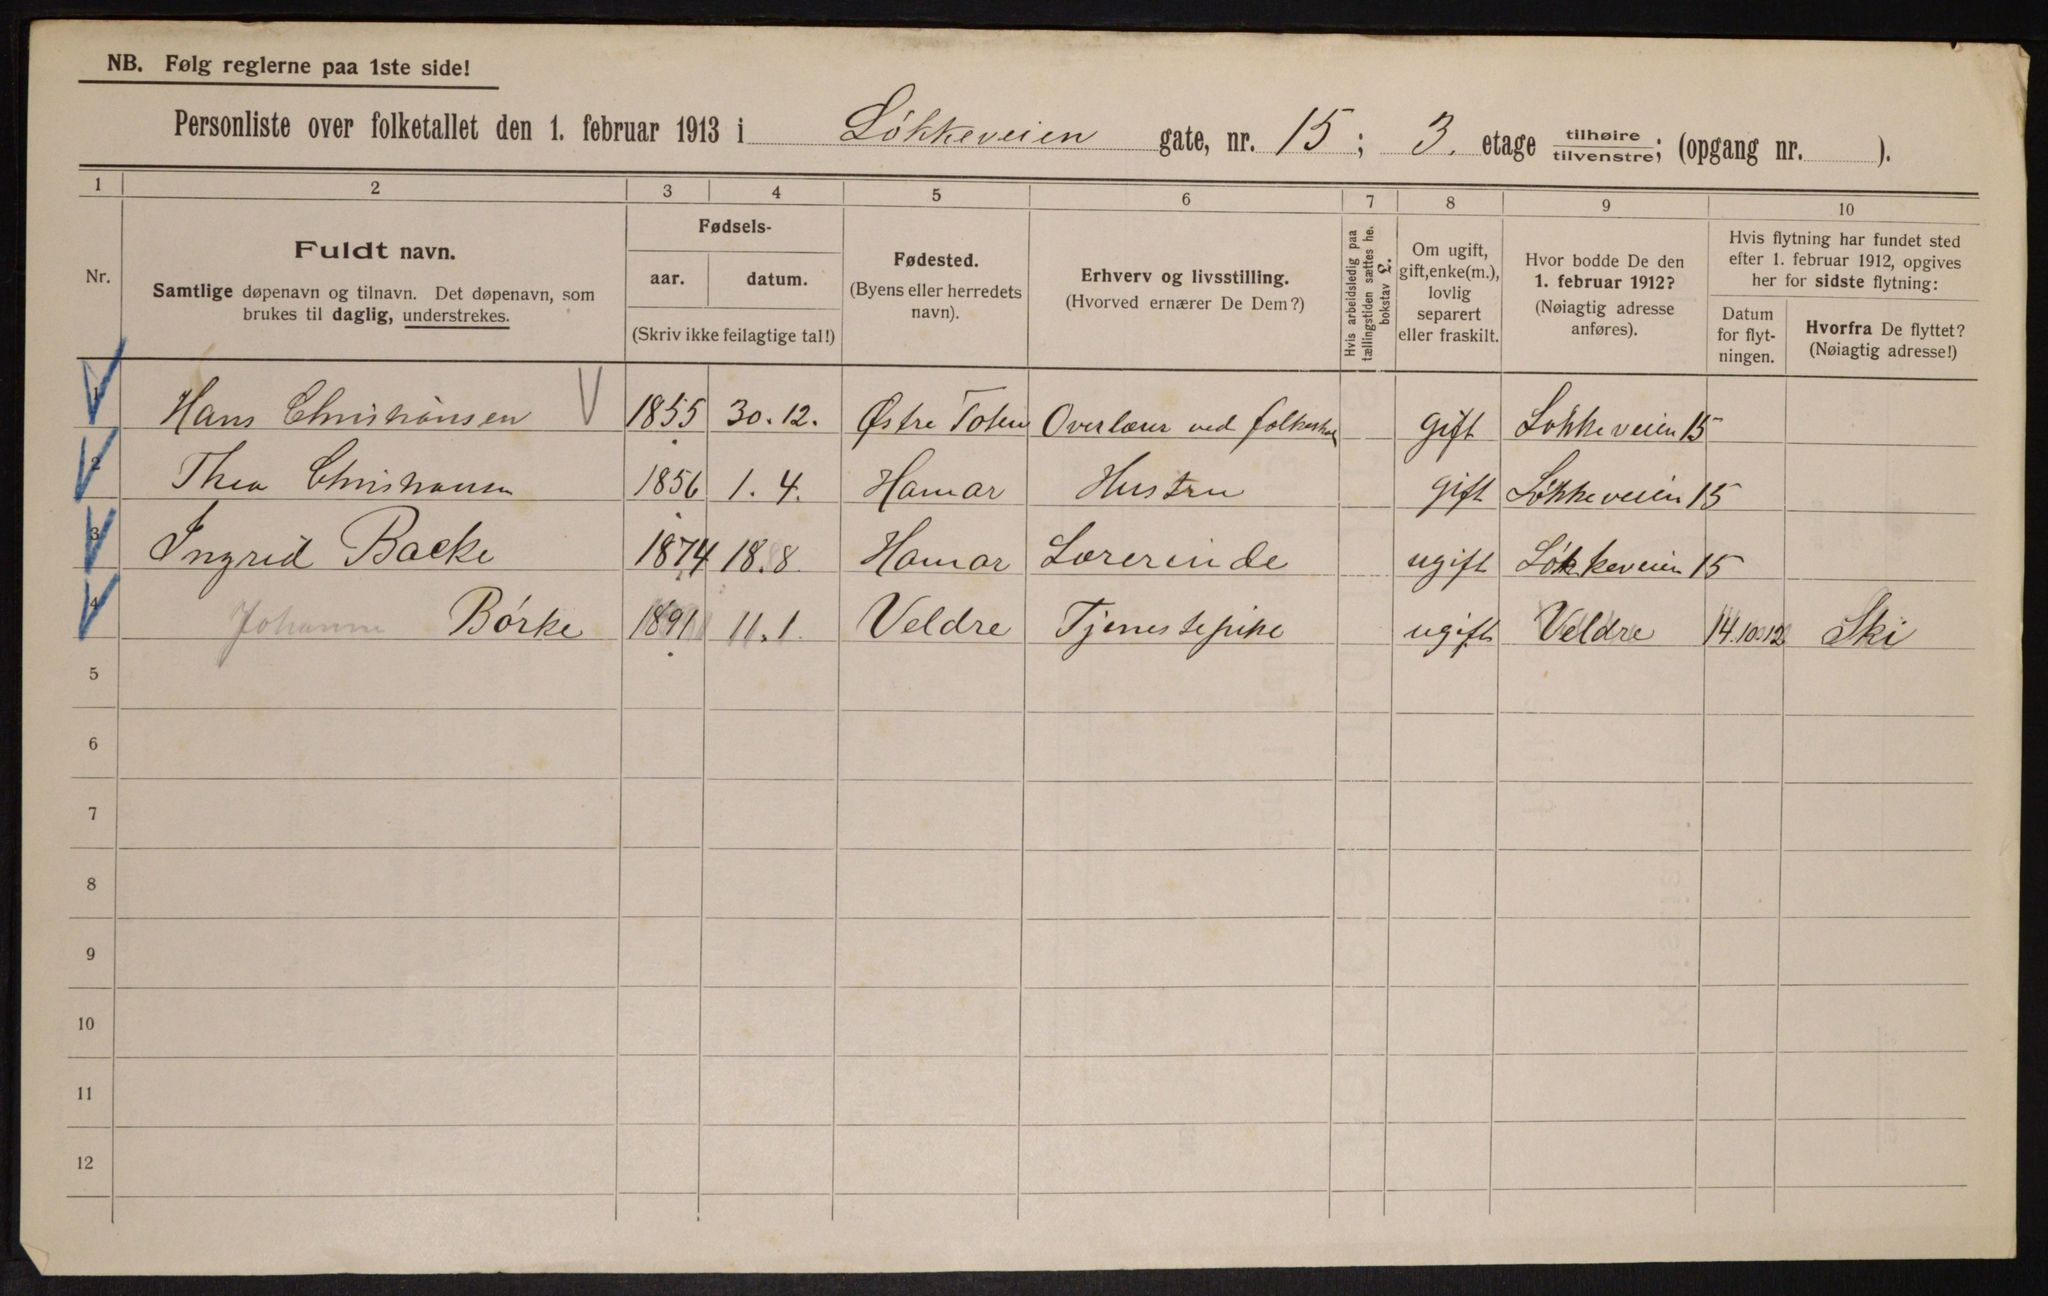 NB. Følg reglerne paa 1ste side!
Personliste over folketallet den 1. februar 1913 i Løkkeveien gate, nr. 15; 3. etage tilhøire/tilvenstre; (opgang nr. ).
1 2 3 4 5 6 7 8 9 10
Nr.
Fuldt navn.
Samtlige døpenavn og tilnavn. Det døpenavn, som
brukes til daglig, understrekes.
Fødsels-
aar. datum.
(Skriv ikke feilagtige tal!)
Fødested.
(Byens eller herredets
navn).
Erhverv og livsstilling.
(Hvorved ernærer De Dem?)
Hvis arbeidsledig paa
tællingstiden sættes he.
bokstav £.
Om ugift,
gift, enke(m.),
lovlig
separert
eller fraskilt.
Hvor bodde De den
1. februar 1912?
(Nøiagtig adresse
anføres).
Hvis flytning har fundet sted
efter 1. februar 1912, opgives
her for sidste flytning:
Datum
for flyt-
ningen.
Hvorfra De flyttet?
(Nøiagtig adresse!)
1 Hans Christiansen V 1855 30.12. Østre Toten Overlærer ved folkeskol gift Løkkeveien 15
2 Thea Christiansen 1856 1.4. Hamar Hustru gift Løkkeveien 15
3 Ingrid Backe 1874 18.8 Hamar Lærerinde ugift Løkkeveien 15
4 Johanne Børke 1891 11.1. Veldre Tjenestepike ugift Veldre 14.10.12 Ski
5
6
7
8
9
10
11
12